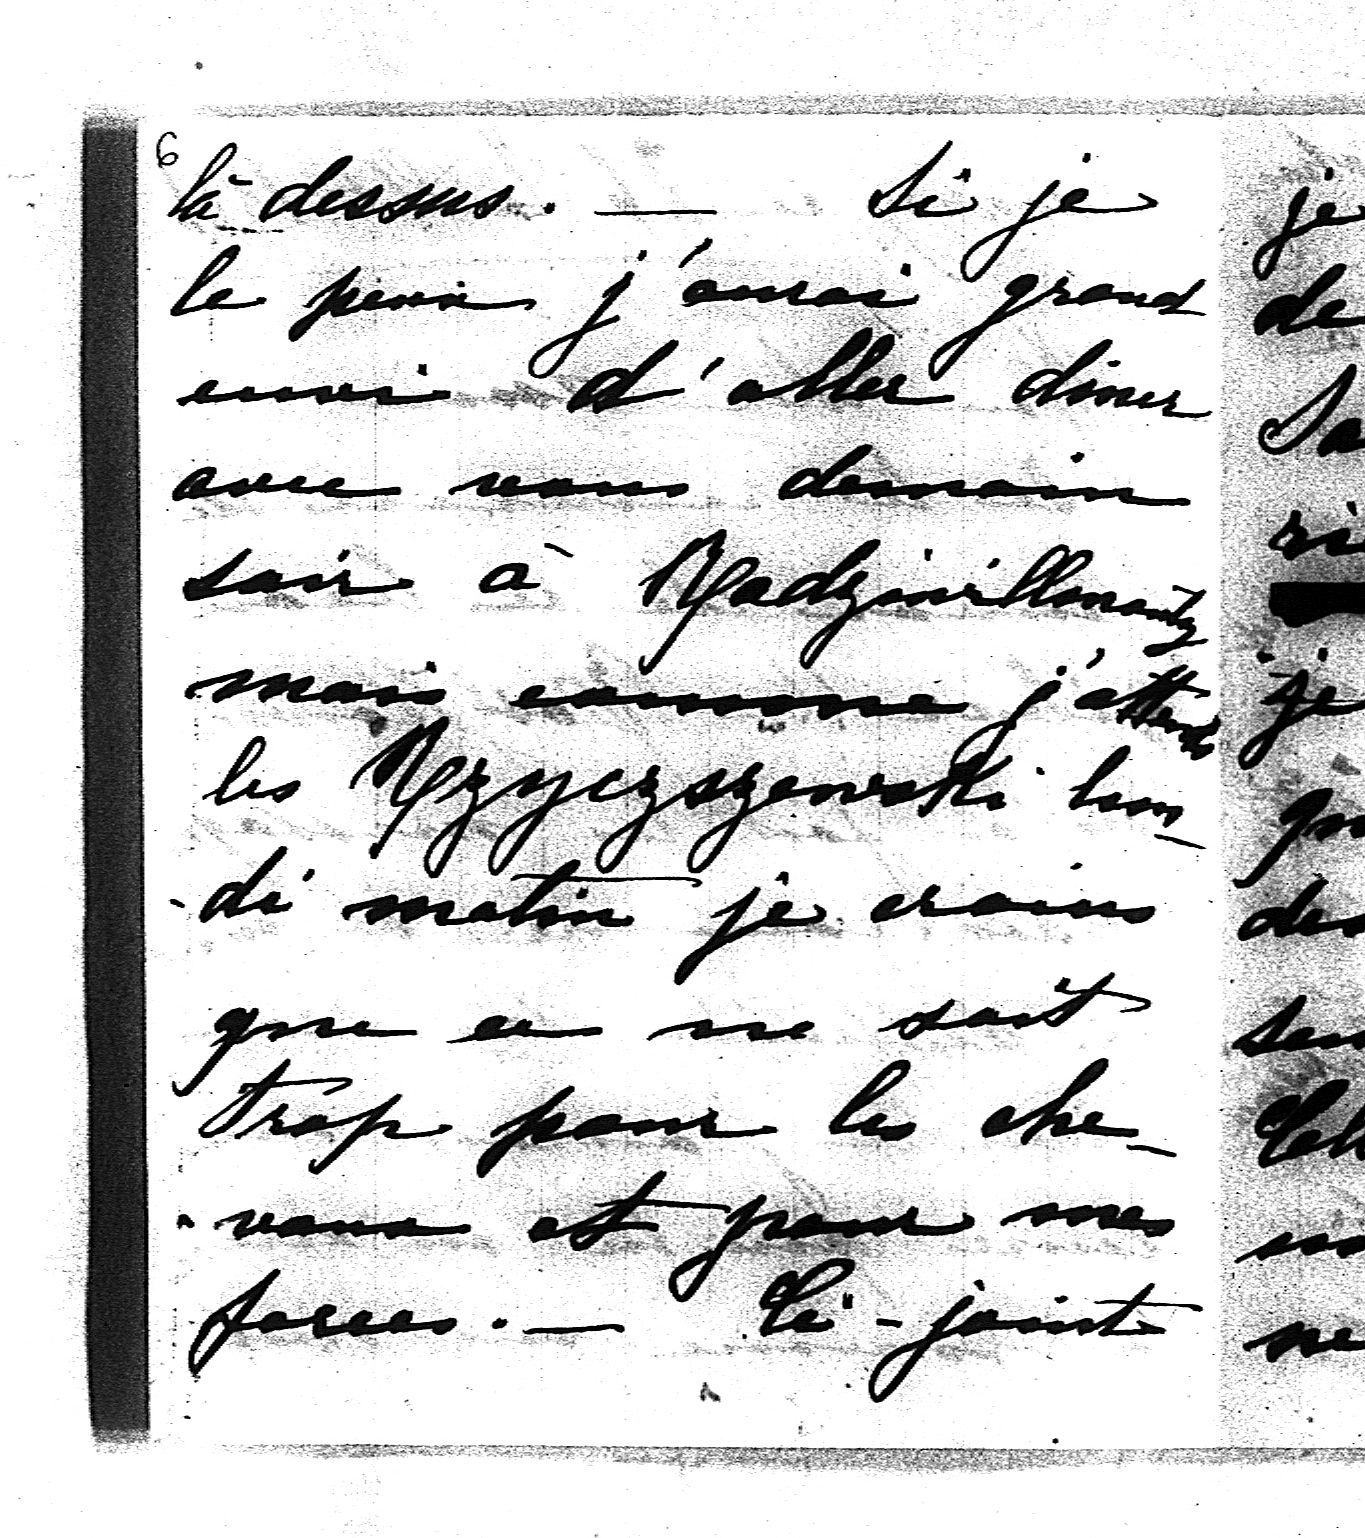 6
là dessus. — Si je
le peux j'aurai grand
envi d'aller diner
avec vous demain
soir à Radziwillmonty
mais comme j'attends
les Rzyczszewski lun-
di matin je crains
que ce ne soit
trop pour les che-
vaux et pour mes
forces. — Ci-joint
je
de
ri
je
des
ne